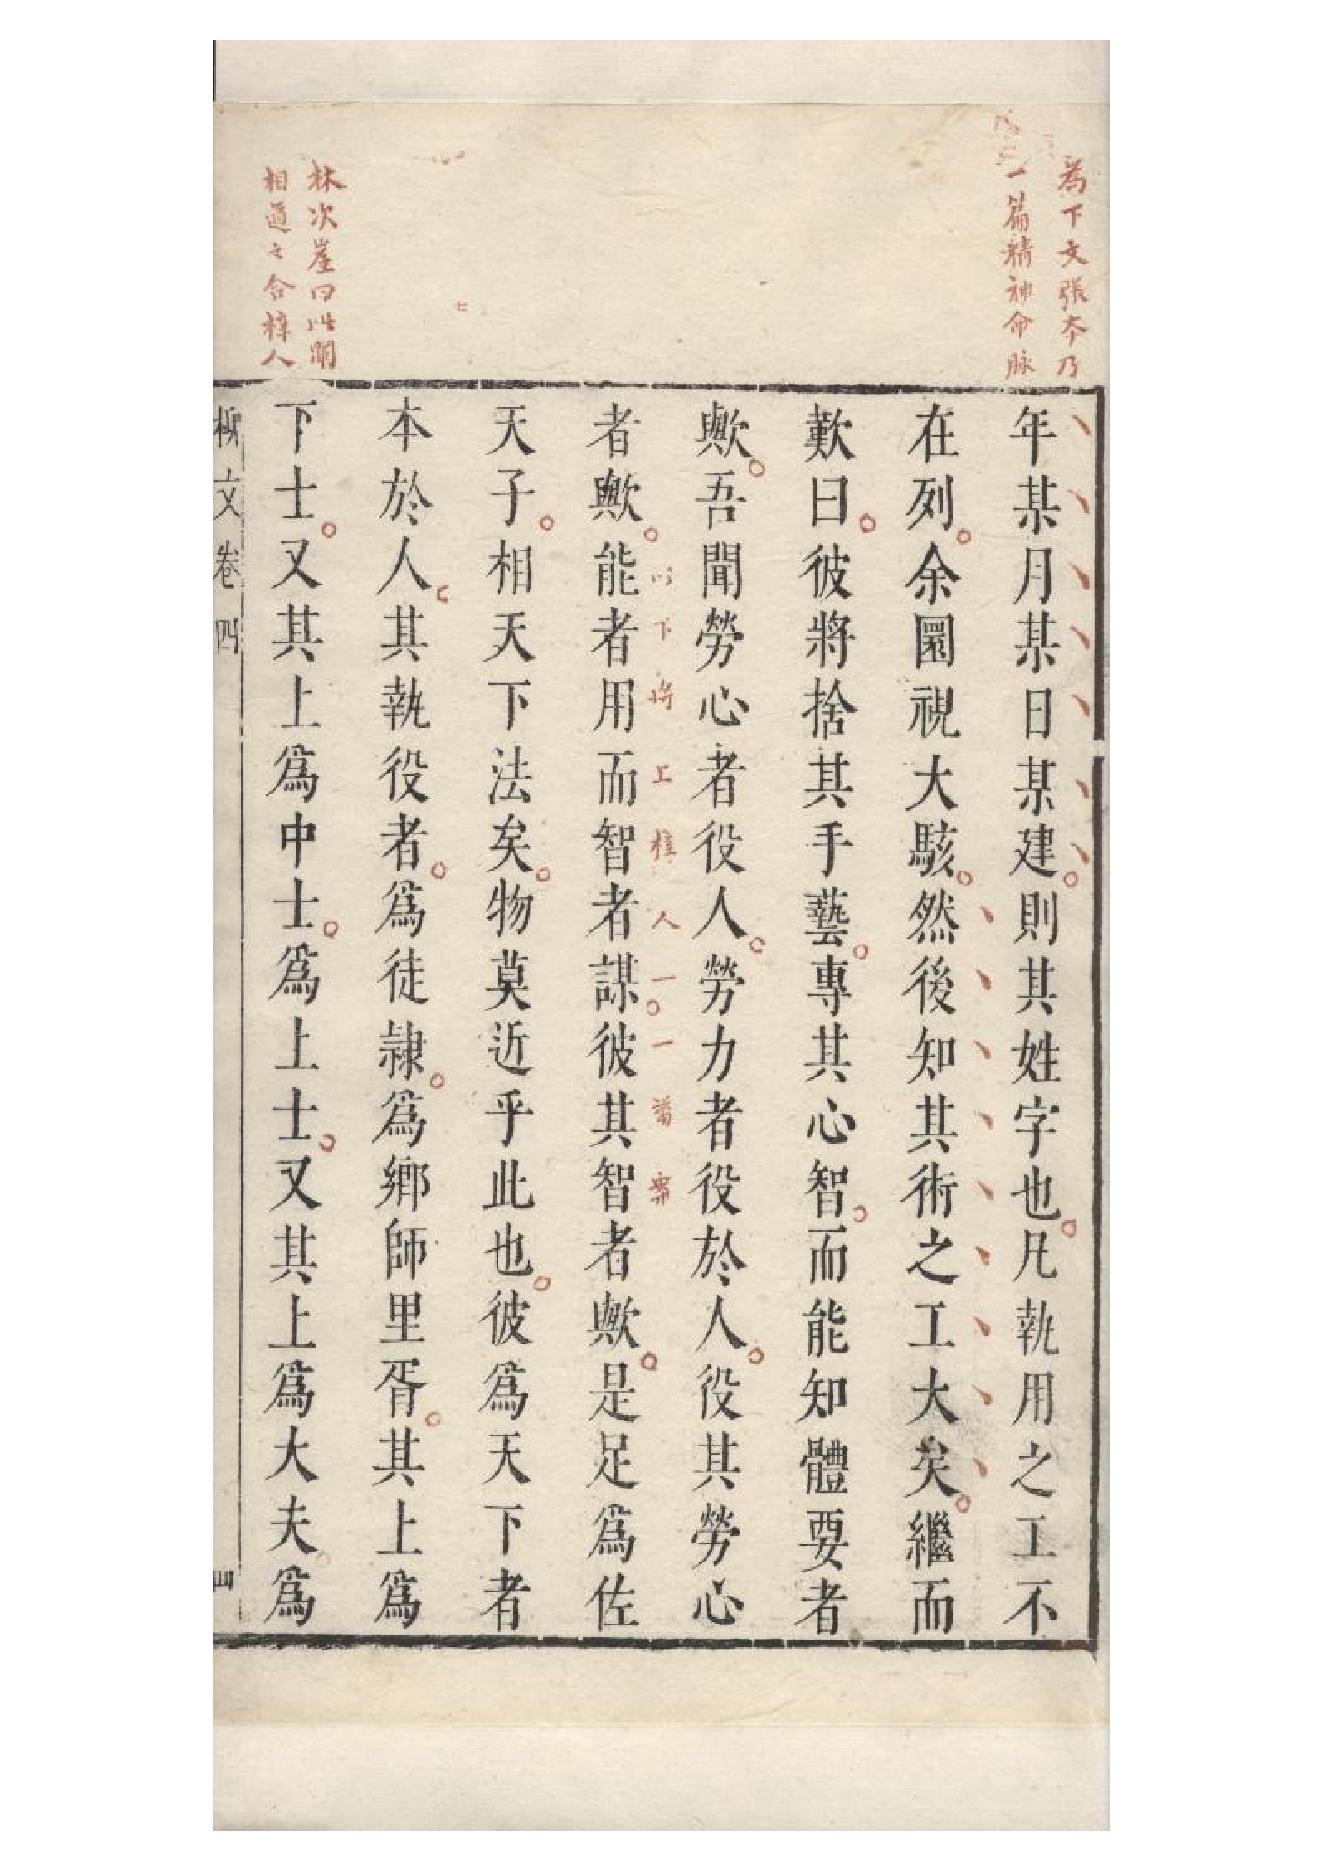 爲下文張本乃
一篇精神命脉
年某月某日某建則其姓字也凡執用之工不
在列余圜視大駭然後知其術之工大矣繼而
歎曰彼將捨其手藝專其心智而能知體要者
歟吾聞勞心者役人勞力者役於人役其勞心
以下將工梓人一一譜寀
者歟能者用而智者謀彼其智者歟是足爲佐
天子相天下法矣物莫近乎此也彼爲天下者
本於人其執役者爲徒隷爲鄉師里胥其上爲
林次崖曰此明
相道之合梓人
下士又其上爲中士爲上士又其上爲大夫爲
柳文卷四
四